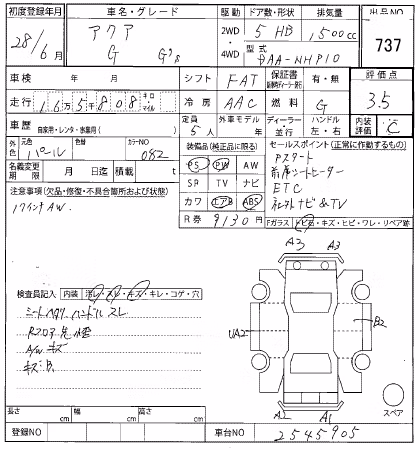 初度登録年月 車名・グレード 駆動 ドア数・形状 排気量 出品NO
28/6月 アクア 2WD 5 HB 1,500cc 737
G G's ・4WD 型式 DAA-NHP10
車検 年 月 シフト FAT 保証書 有・無 評価点
走行 16万5千808 キロ マイル 冷房 AAC 燃料 G 3.5
車歴 自家用・レンタ・事業用( ) 定員 5人 外車モデル 年 ディーラー・並行 ハンドル 左・右 内装評価 C
外色 元色 パール カラーNO 082 装備品(純正品に限る) セールスポイント(正常に作動するもの)
名義変更期限 月 日迄 積載 t PS PW AW
アスタート
前席シートヒーター
注意事項(欠品・修復・不具合箇所および状態) SR TV ナビ
ETC
17インチAW カワ エアB ABS
R券 9130円
Fガラス トビ石・キズ・ヒビ・ワレ・リペア跡
A3 A3
検査員記入 内装 汚レ・スレ・キズ・キレ・コゲ・穴
シートヘタリ ハンドルスレ
A/W キズ
UA2 B2
スペア
A2 A1
長さ cm 幅 cm 高さ cm
登録NO 車台NO 2545905